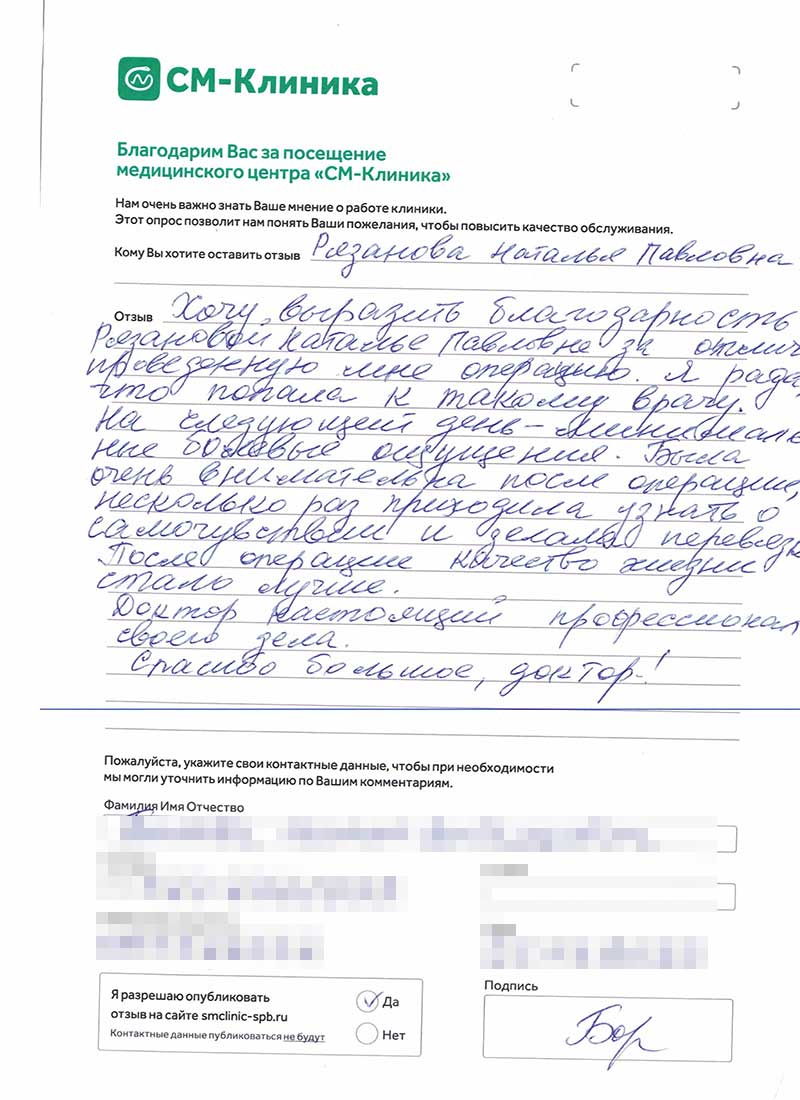 СМ-Клиника
Благодарим Вас за посещение
медицинского центра «СМ-Клиника»
Нам очень важно знать Ваше мнение о работе клиники.
Этот опрос позволит нам понять Ваши пожелания, чтобы повысить качество обслуживания.
Кому Вы хотите оставить отзыв Рязанова Наталья Павловна
Отзыв Хочу выразить благодарность
Рязановой Наталье Павловне за отлич
проведенную мне операцию. Я рада,
что попала к такому врачу.
На следующий день – минималь
ные болевые ощущения. Была
очень внимательна после операции,
несколько раз приходила узнать о
самочувствии и делала перевязк
После операции качество жизни
стало лучше.
Доктор настоящий профессионал
своего дела.
Спасибо большое, доктор!
Пожалуйста, укажите свои контактные данные, чтобы при необходимости
мы могли уточнить информацию по Вашим комментариям.
Фамилия Имя Отчество
Я разрешаю опубликовать
отзыв на сайте smclinic-spb.ru
Контактные данные публиковаться не будут
Да
Нет
Подпись
Бор